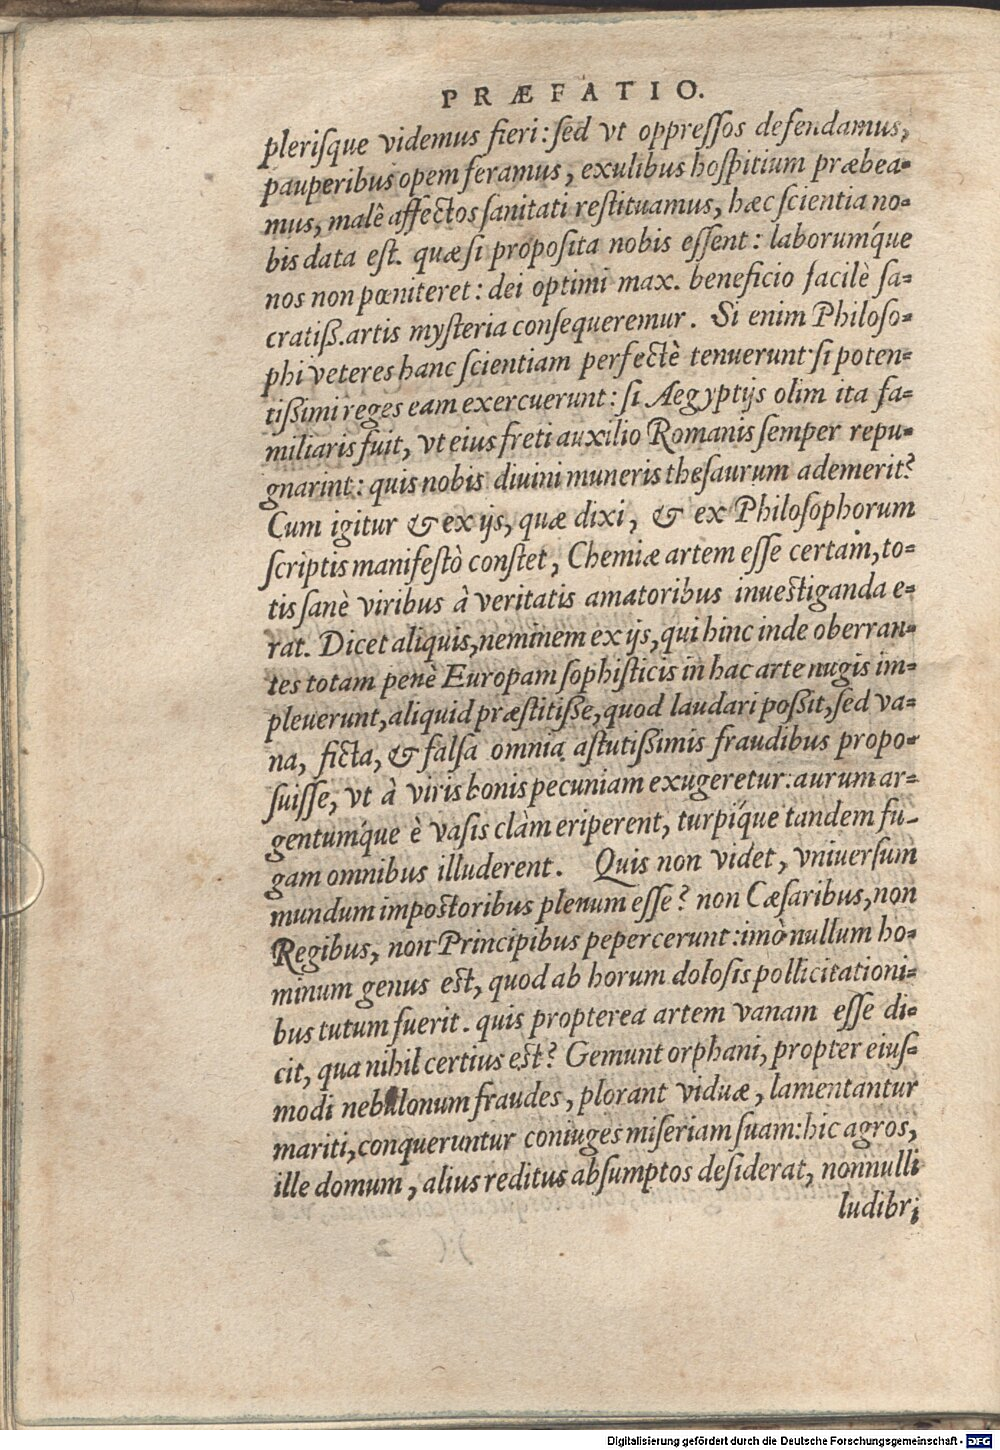 PRÆFATIO.
pleriſque videmus fieri: ſed vt oppreſſos defendamus,
pauperibus opem feramus, exulibus hoſpitium præbea-
mus, malê affectos ſanitati reſtituamus, hæc ſcientia no-
bis data eſt. quæ ſi propoſita nobis eſſent: laborumq́ue
nos non pœniteret: dei optimi max. beneficio facilè ſa-
cratiß. artis myſteria conſequeremur. Si enim Philoſo-
phi veteres hanc ſcientiam perfectè tenuerunt: ſi poten-
tißimi reges eam exercuerunt: ſi Aegyptijs olim ita fa-
miliaris fuit, vt eius freti auxilio Romanis ſemper repu-
gnarint: quis nobis diuini muneris theſaurum ademerit?
Cum igitur & ex ijs, quæ dixi, & ex Philoſophorum
ſcriptis manifeſtò conſtet, Chemiæ artem eſſe certam, to-
tis ſanè viribus â veritatis amatoribus inueſtiganda e-
rat. Dicet aliquis, neminem ex ijs, qui hinc inde oberran-
tes totam penè Europam ſophiſticis in hac arte nugis im-
pleuerunt, aliquid præſtitiße, quod laudari poßit, ſed va-
na, ficta, & falſa omnia aſtutißimis fraudibus propo-
ſuiſſe, vt à viris bonis pecuniam exugeretur: aurum ar-
gentumq́ue è vaſis clàm eriperent, turpiq́ue tandem fu-
gam omnibus illuderent. Quis non videt, vniuerſum
mundum impoſtoribus plenum eſſe? non Cæſaribus, non
Regibus, non Principibus pepercerunt: imò nullum ho-
minum genus eſt, quod ab horum doloſis pollicitationi-
bus tutum fuerit. quis propterea artem vanam eſſe di-
cit, qua nihil certius eſt? Gemunt orphani, propter eiuſ-
modi nebulonum fraudes, plorant viduæ, lamentantur
mariti, conqueruntur coniuges miſeriam ſuam: hic agros,
ille domum, alius reditus abſumptos deſiderat, nonnulli
ludibri
Digitalisierung gefördert durch die Deutsche Forschungsgemeinschaft - DFG